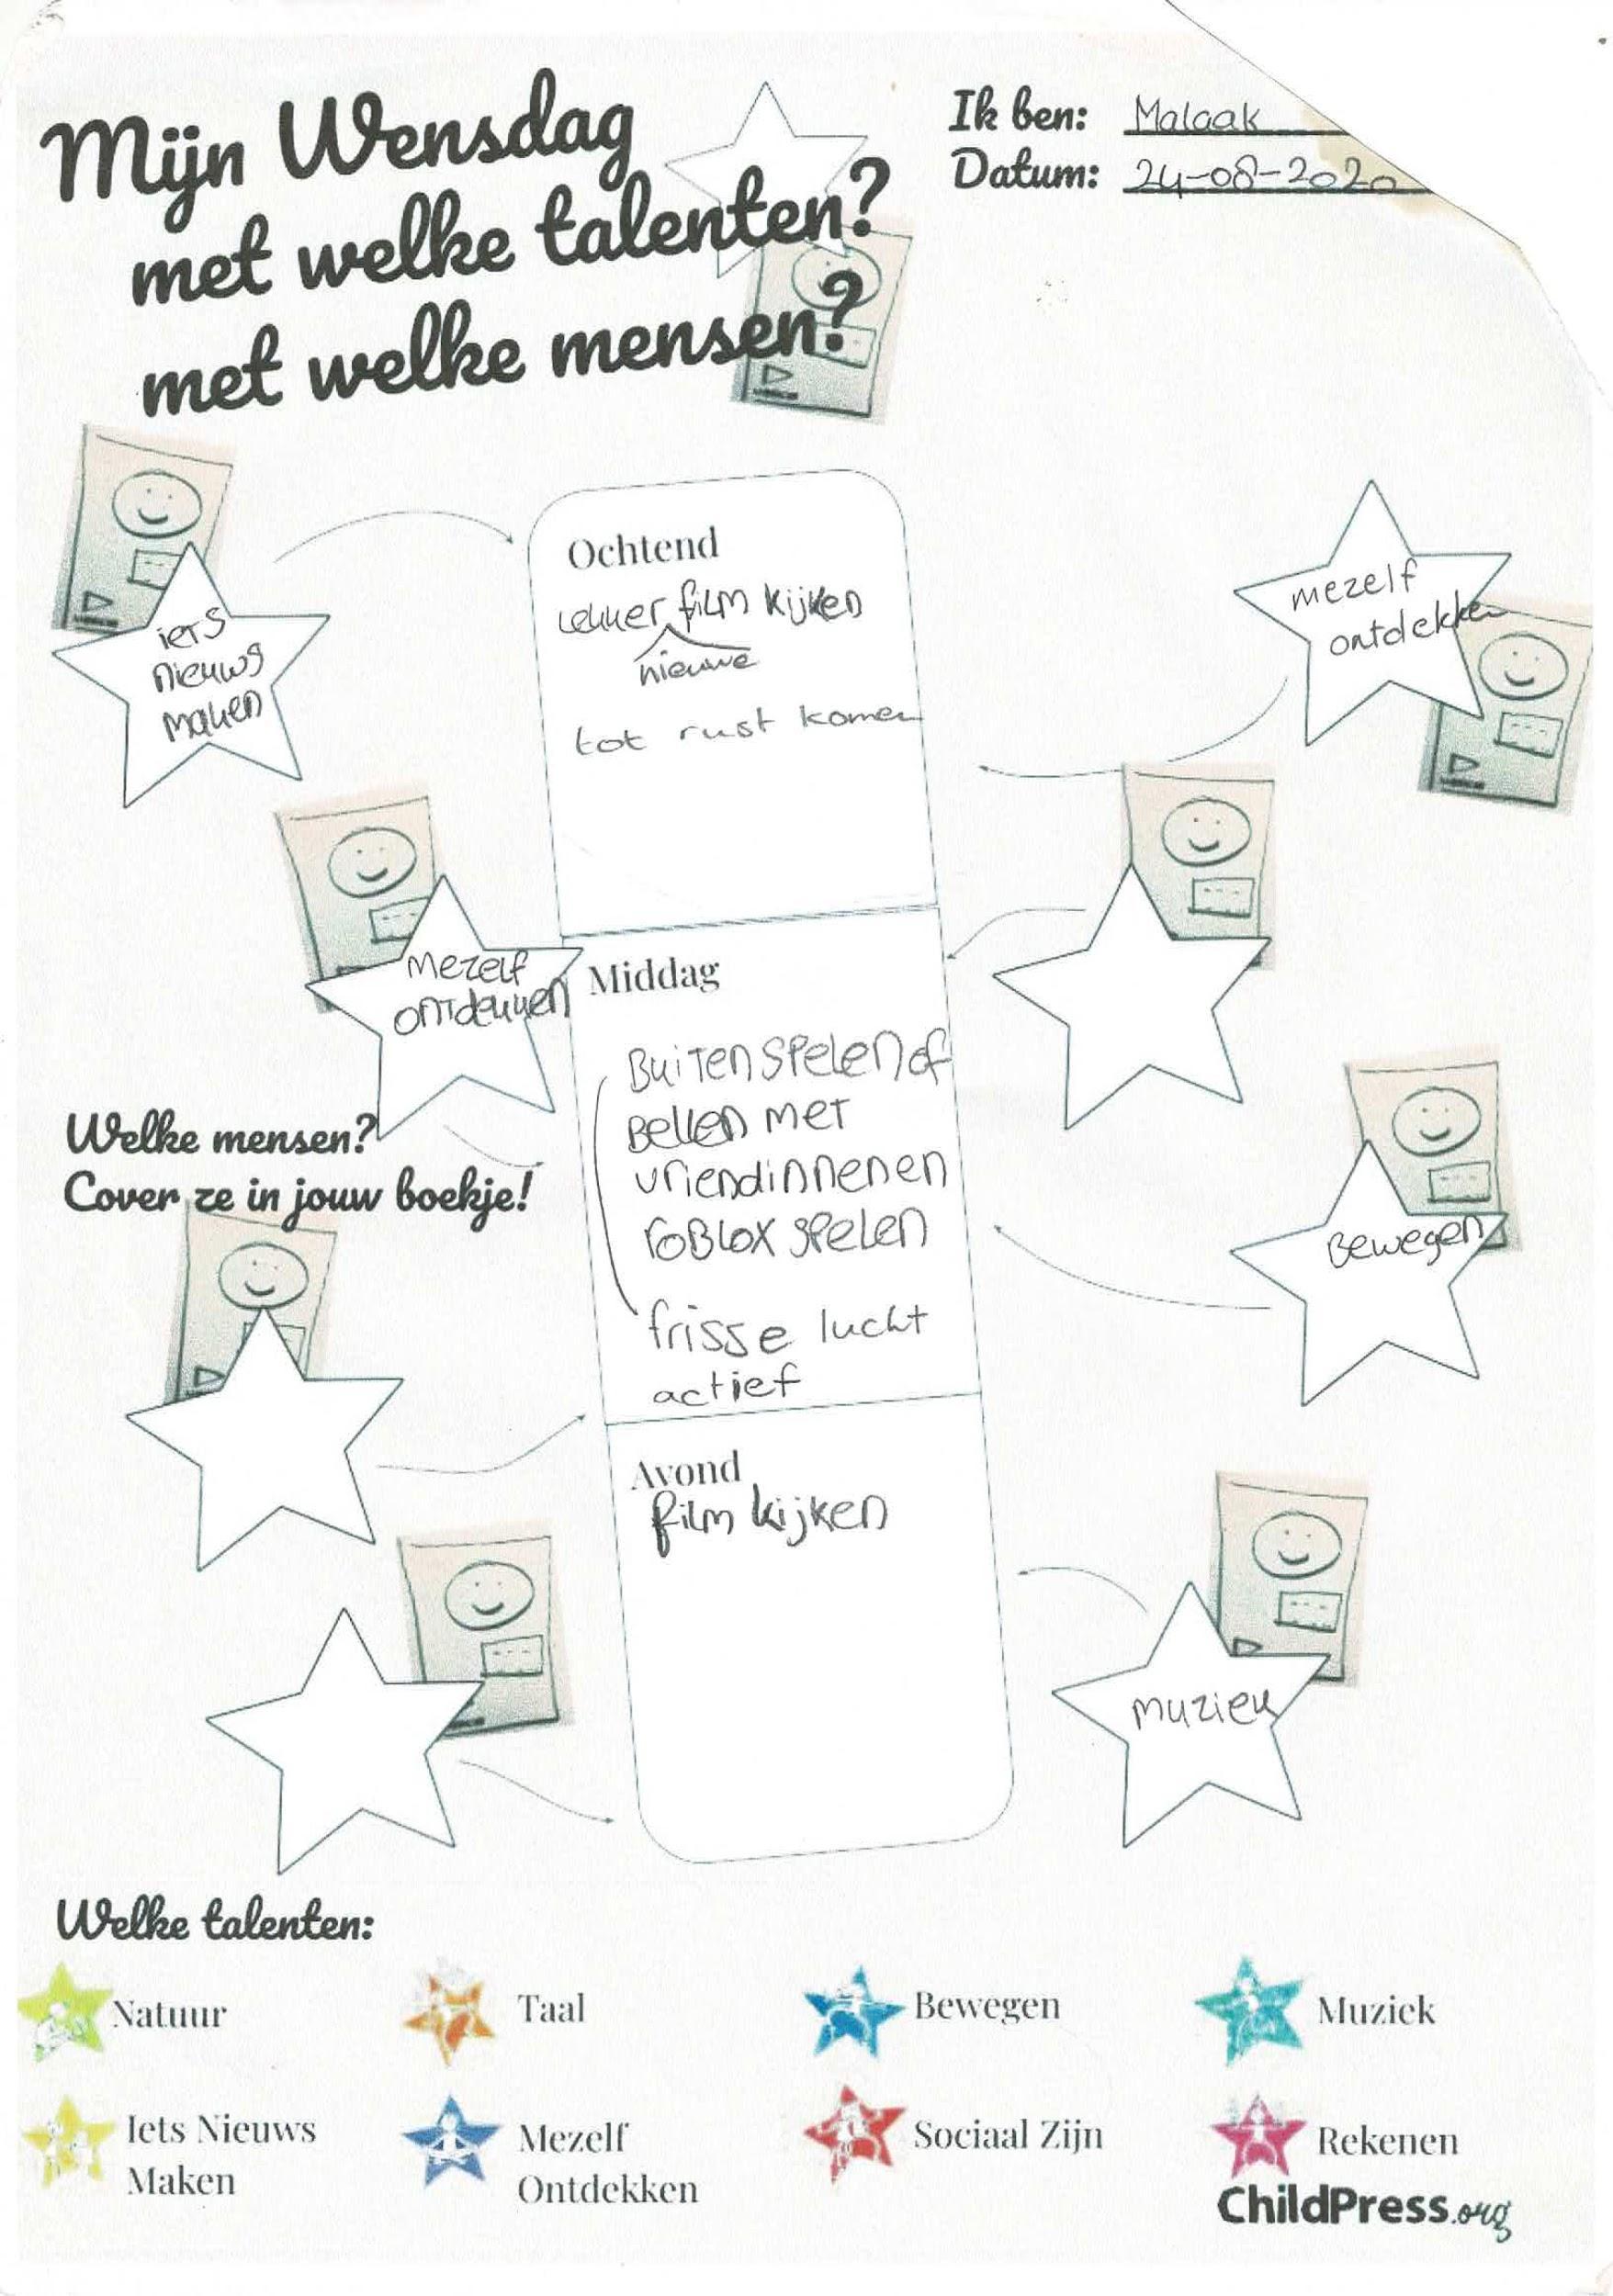 Mijn Wensdag
met welke talenten?
met welke mensen?
Ik ben: Malaak
Datum: 24-08-2020
Ochtend
lekker film kijken
nieuwe
tot rust komen
iers
nieuws
maken
mezelf
ontdekken
mezelf
ontdekken
Middag
Buiten spelen of
Bellen met
vriendinnenen
roBlox spelen
frisse lucht
actief
Welke mensen?
Cover ze in jouw boekje!
Bewegen
Avond
film kijken
muziek
Welke talenten:
Natuur
Taal
Bewegen
Muziek
Iets Nieuws
Maken
Mezelf
Ontdekken
Sociaal Zijn
Rekenen
ChildPress.org